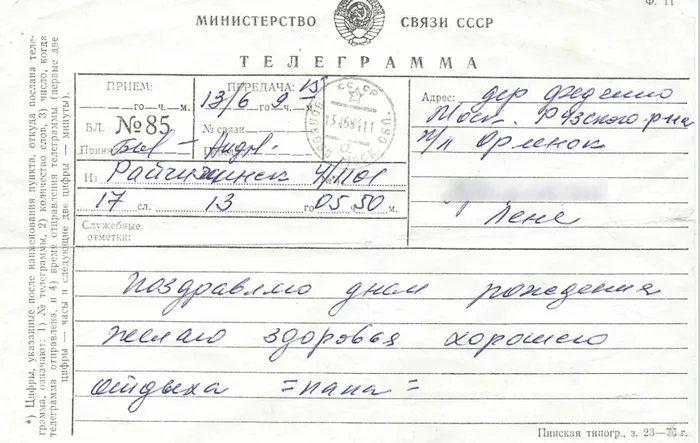 Ф. 11
МИНИСТЕРСТВО СВЯЗИ СССР
ТЕЛЕГРАММА
ПРИЕМ:
го ч. м.
БЛ. №85
ПЕРЕДАЧА:
13/6 го 9 ч. 15
№ связи
Адрес: дер Федчино
Моск. Рузского р-на
п/л Орленок
Лене
Из Райчихинск 4/1101
17 сл. 13 го 05 50 м.
Служебные
отметки:
поздравляю днем рождения
желаю здоровья хорошего
отдыха =папа=
*) Цифры, указанные после наименования пункта, откуда послана теле-
грамма, означают: 1) № телеграммы, 2) количество слов, 3) число, когда
телеграмма отправлена, и 4) время отправления телеграммы (первые две
цифры — часы и следующие две цифры — минуты).
Пинская типогр., з. 23—